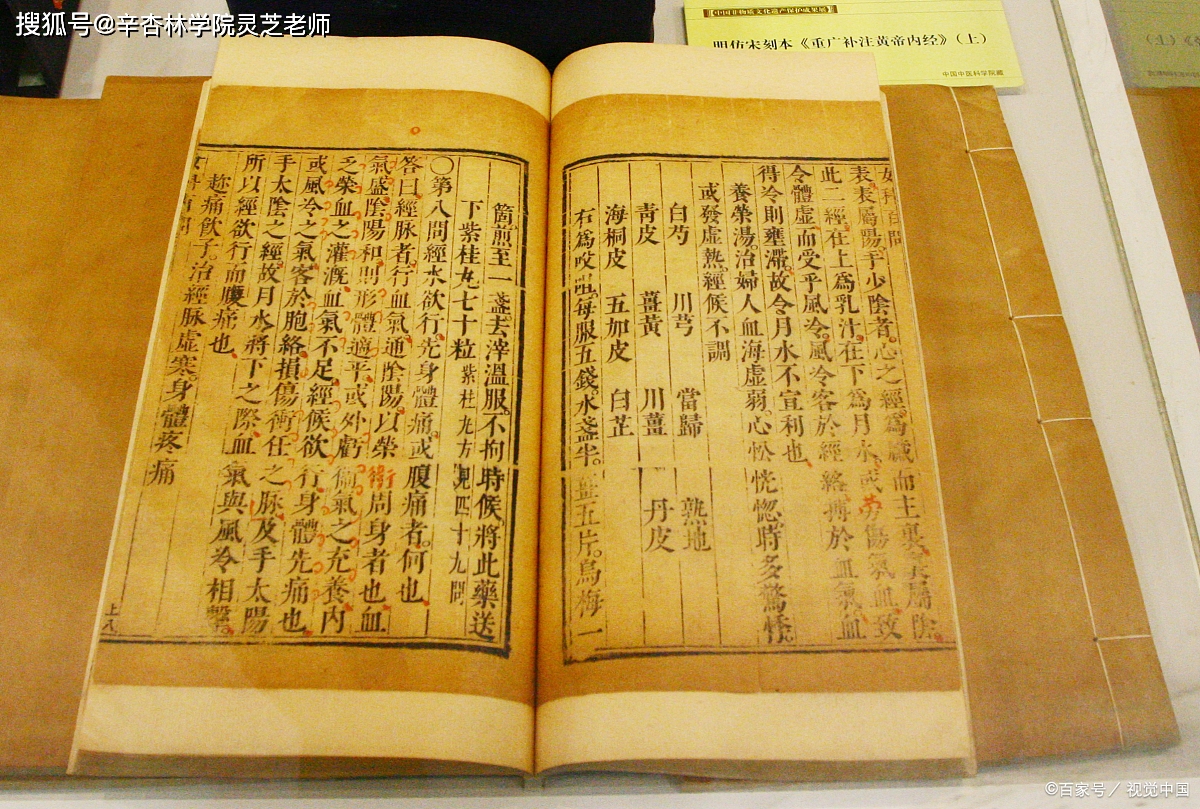 搜狐号@辛杏林学院灵芝老师
【中国非物质文化遗产保护成果展】
明仿宋刻本《重广补注黄帝内经》(上)
中国中医科学院藏
女科百問
表表屬陽手少陰者心之經為臟而主裏裏屬陰
此二經在上為乳汁在下為月水或勞傷氣血致
令體虛而受乎風冷風冷客於經絡搏於血氣血
得冷則壅滯故令月水不宣利也
養榮湯治婦人血海虛弱心忪恍惚時多驚悸
或發虛熱經候不調
白芍 川芎 當歸 熟地
青皮 薑黃 川薑 丹皮
海桐皮 五加皮 白芷
右為㕮咀每服五錢水盞半薑五片烏梅一
箇煎至一盞去滓溫服不拘時候將此藥送
下紫桂丸七十粒紫桂丸方見四十九問
〇第八問經水欲行先身體痛或腹痛者何也
答曰經脈者行血氣通陰陽以榮衛周身者也血
氣盛陰陽和則形體適平或外虧衛氣之充養內
乏榮血之灌溉血氣不足經候欲行身體先痛也
或風冷之氣客於胞絡損傷衝任之脈及手太陽
手太陰之經故月水將下之際血氣與風冷相擊
所以經欲行而腹痛也
趂痛飲子治經脈虛寒身體疼痛
上八
©百家号/视觉中国